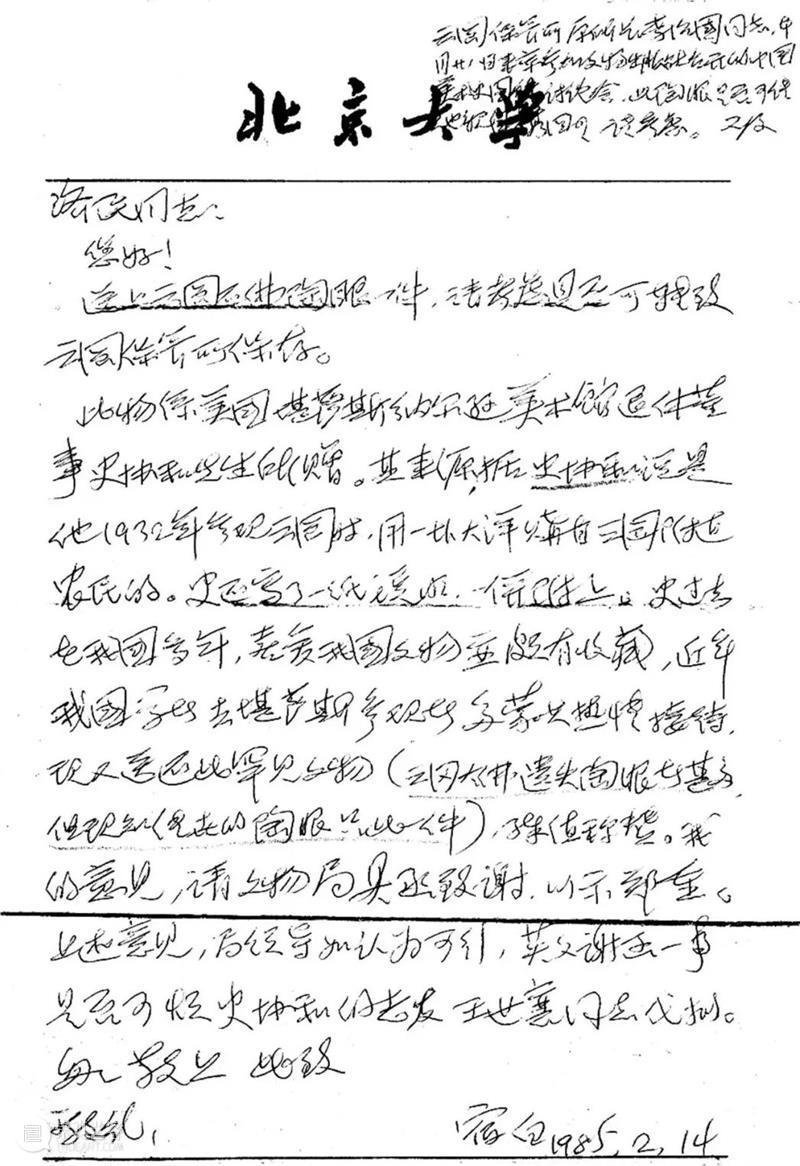 云冈保管所原所长李治国同志，本
月廿八日来京参加文物出版社召开的中国
美术史图录讨论会，此陶眼是否可便
请考虑。又及
北京大学
您好！
送上云冈石佛陶眼一件，请考虑是否可拨致
云冈保管所保存。
此物系美国堪萨斯纳尔逊美术馆退休董
事史协和先生的赠。其来源据史协和说是
他1932年参观云冈时，用一块大洋购自云冈附近
农民的。史还写了一纸说明，一并附上。史过去
在我国多年，喜爱我国文物并颇有收藏，近年
我国学者去堪萨斯参观者多蒙其热情接待，
现又送还此罕见文物（云冈大佛遗失陶眼者甚多，
但现知存世的陶眼只此一件），殊值称赞。我
的意见，请文物局具函致谢，以示郑重。
上述意见，局领导如认为可行，英文谢函一事
是否可烦史协和的老友王世襄同志代拟。
此致
敬礼！
宿白 1985.2.14